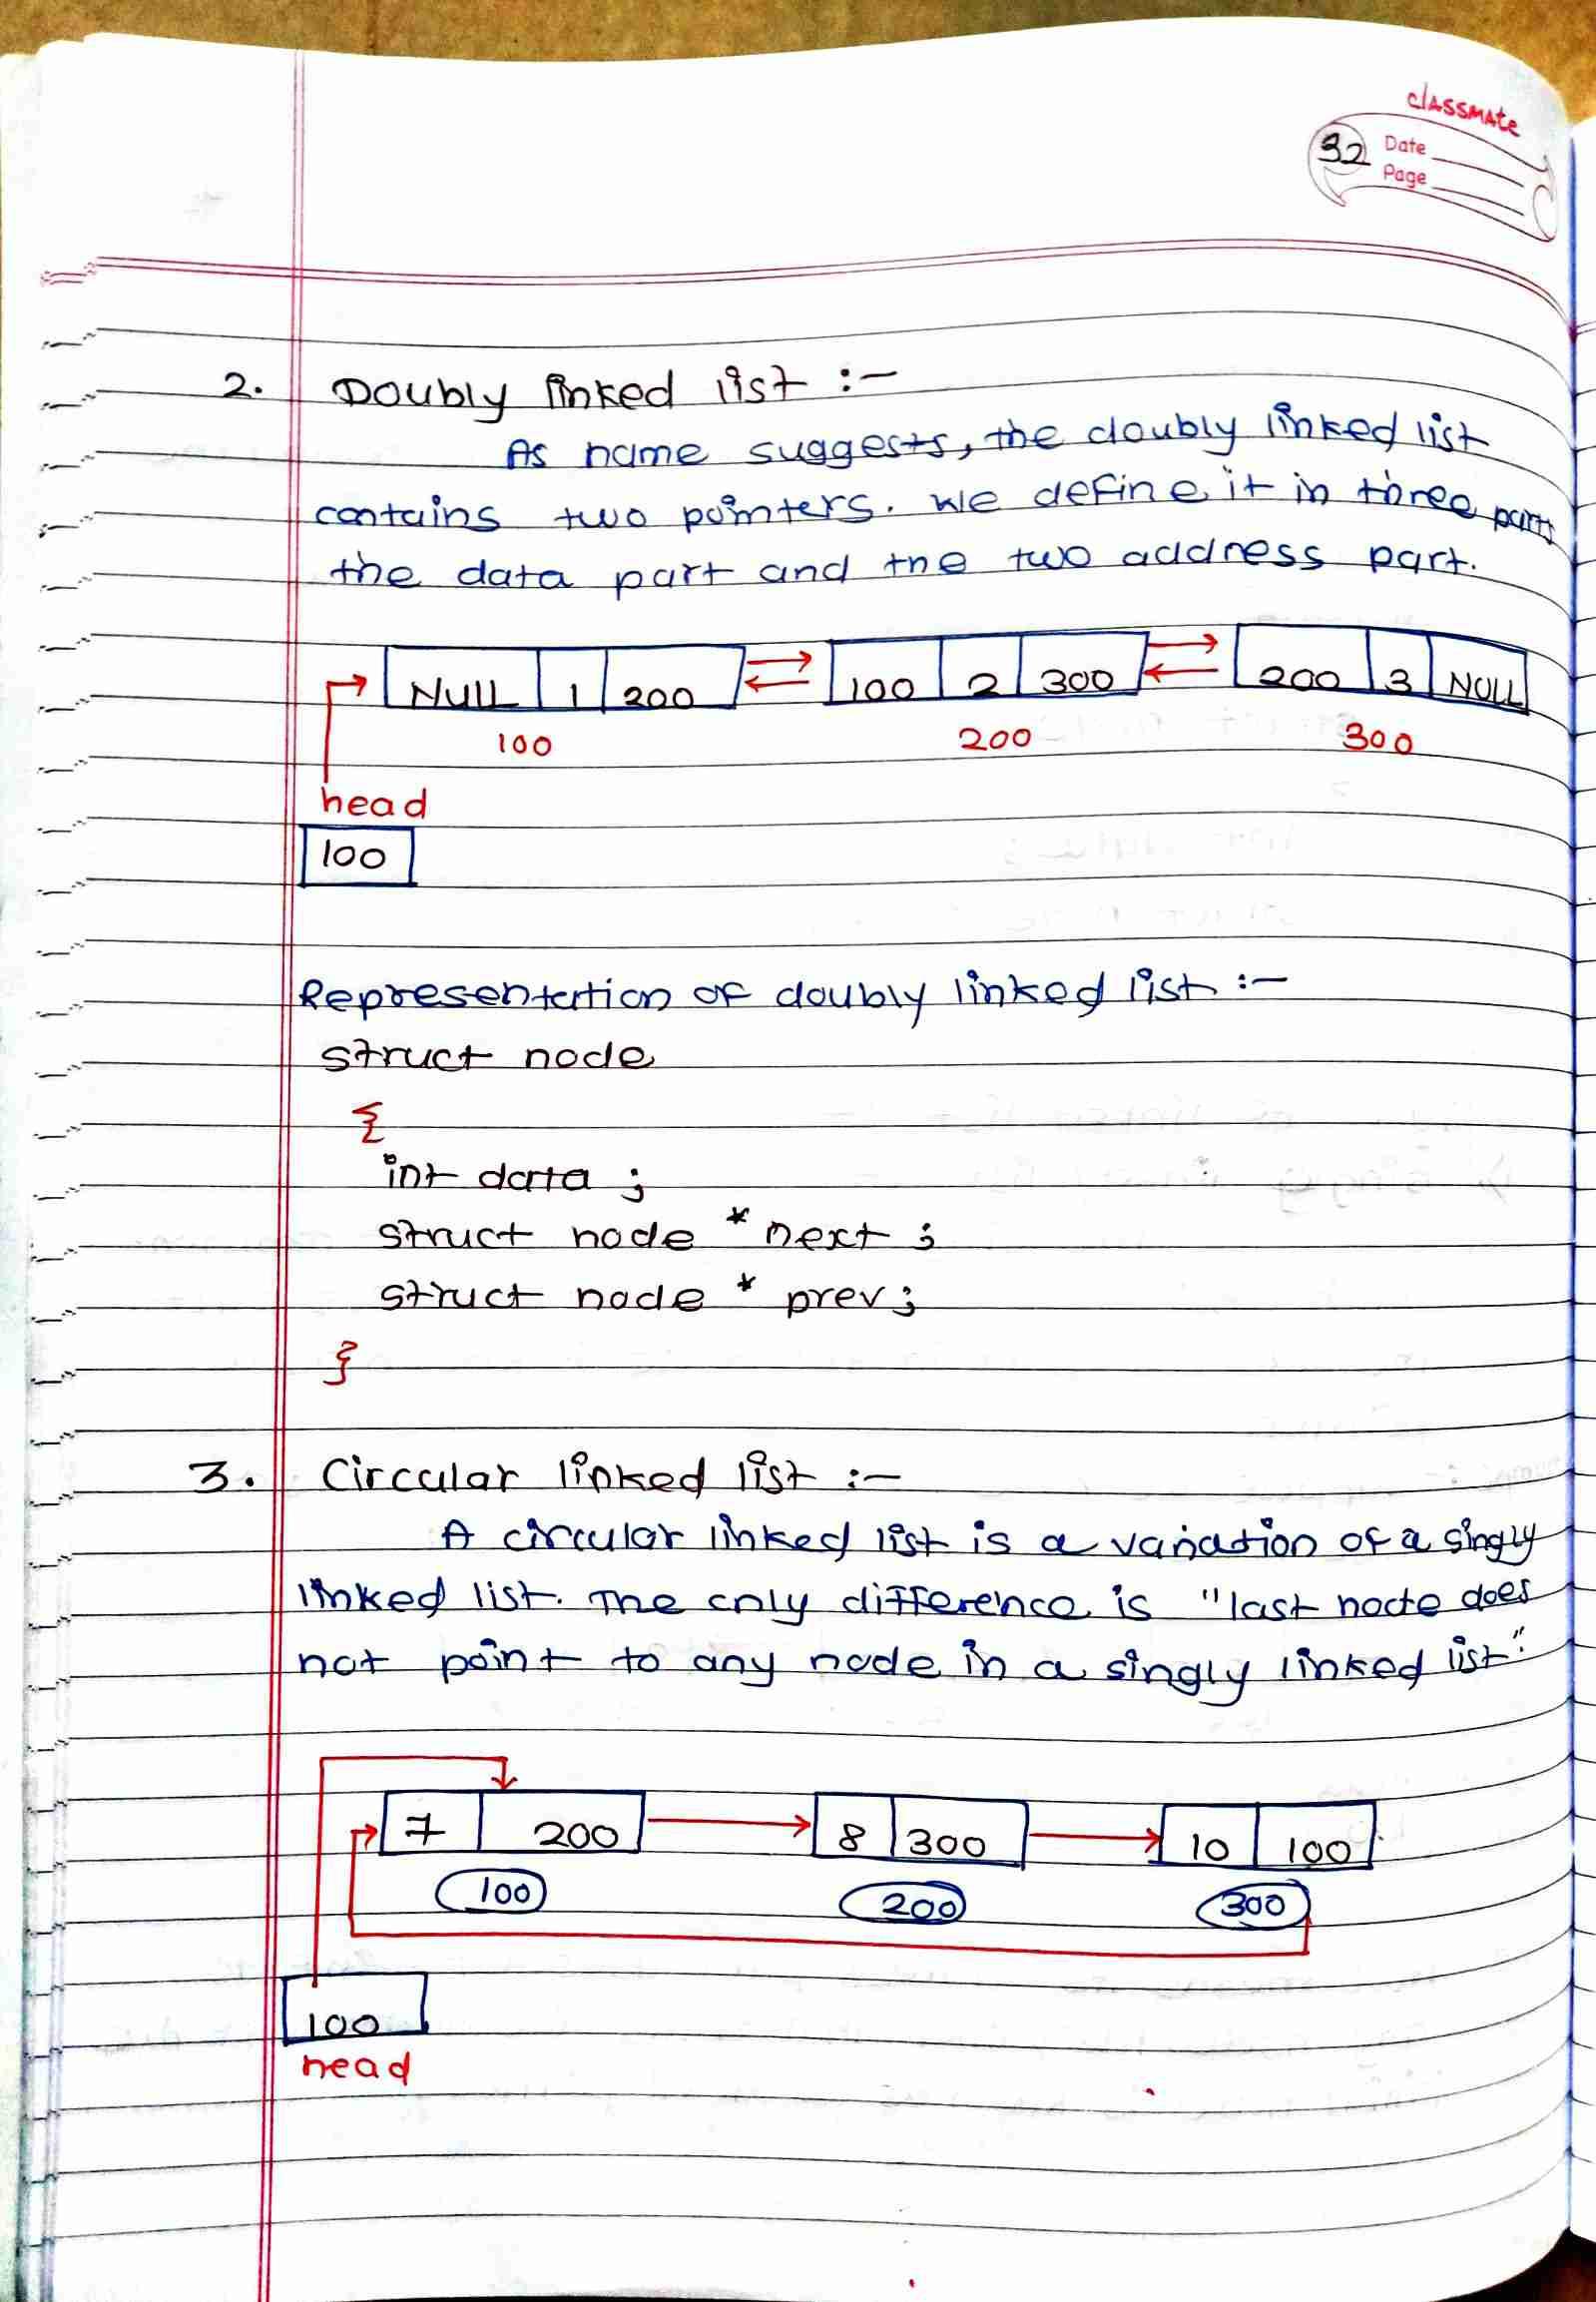 classmate
32 Date
Page
2. Doubly linked list :-
As name suggests, the doubly linked list
contains two pointers. We define it in three parts
the data part and the two address part.
NULL 1 200 100 2 300 200 3 NULL
100 200 300
head
100
Representation of doubly linked list :-
struct node
{
int data ;
struct node * next ;
struct node * prev ;
}
3. Circular linked list :-
A circular linked list is a variation of a singly
linked list. The only difference is "last node does
not point to any node in a singly linked list".
7 200 8 300 10 100
100 200 300
100
head